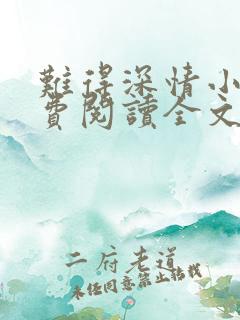 難得深情小
費閱讀全文
二府老道
未经同意禁止转载